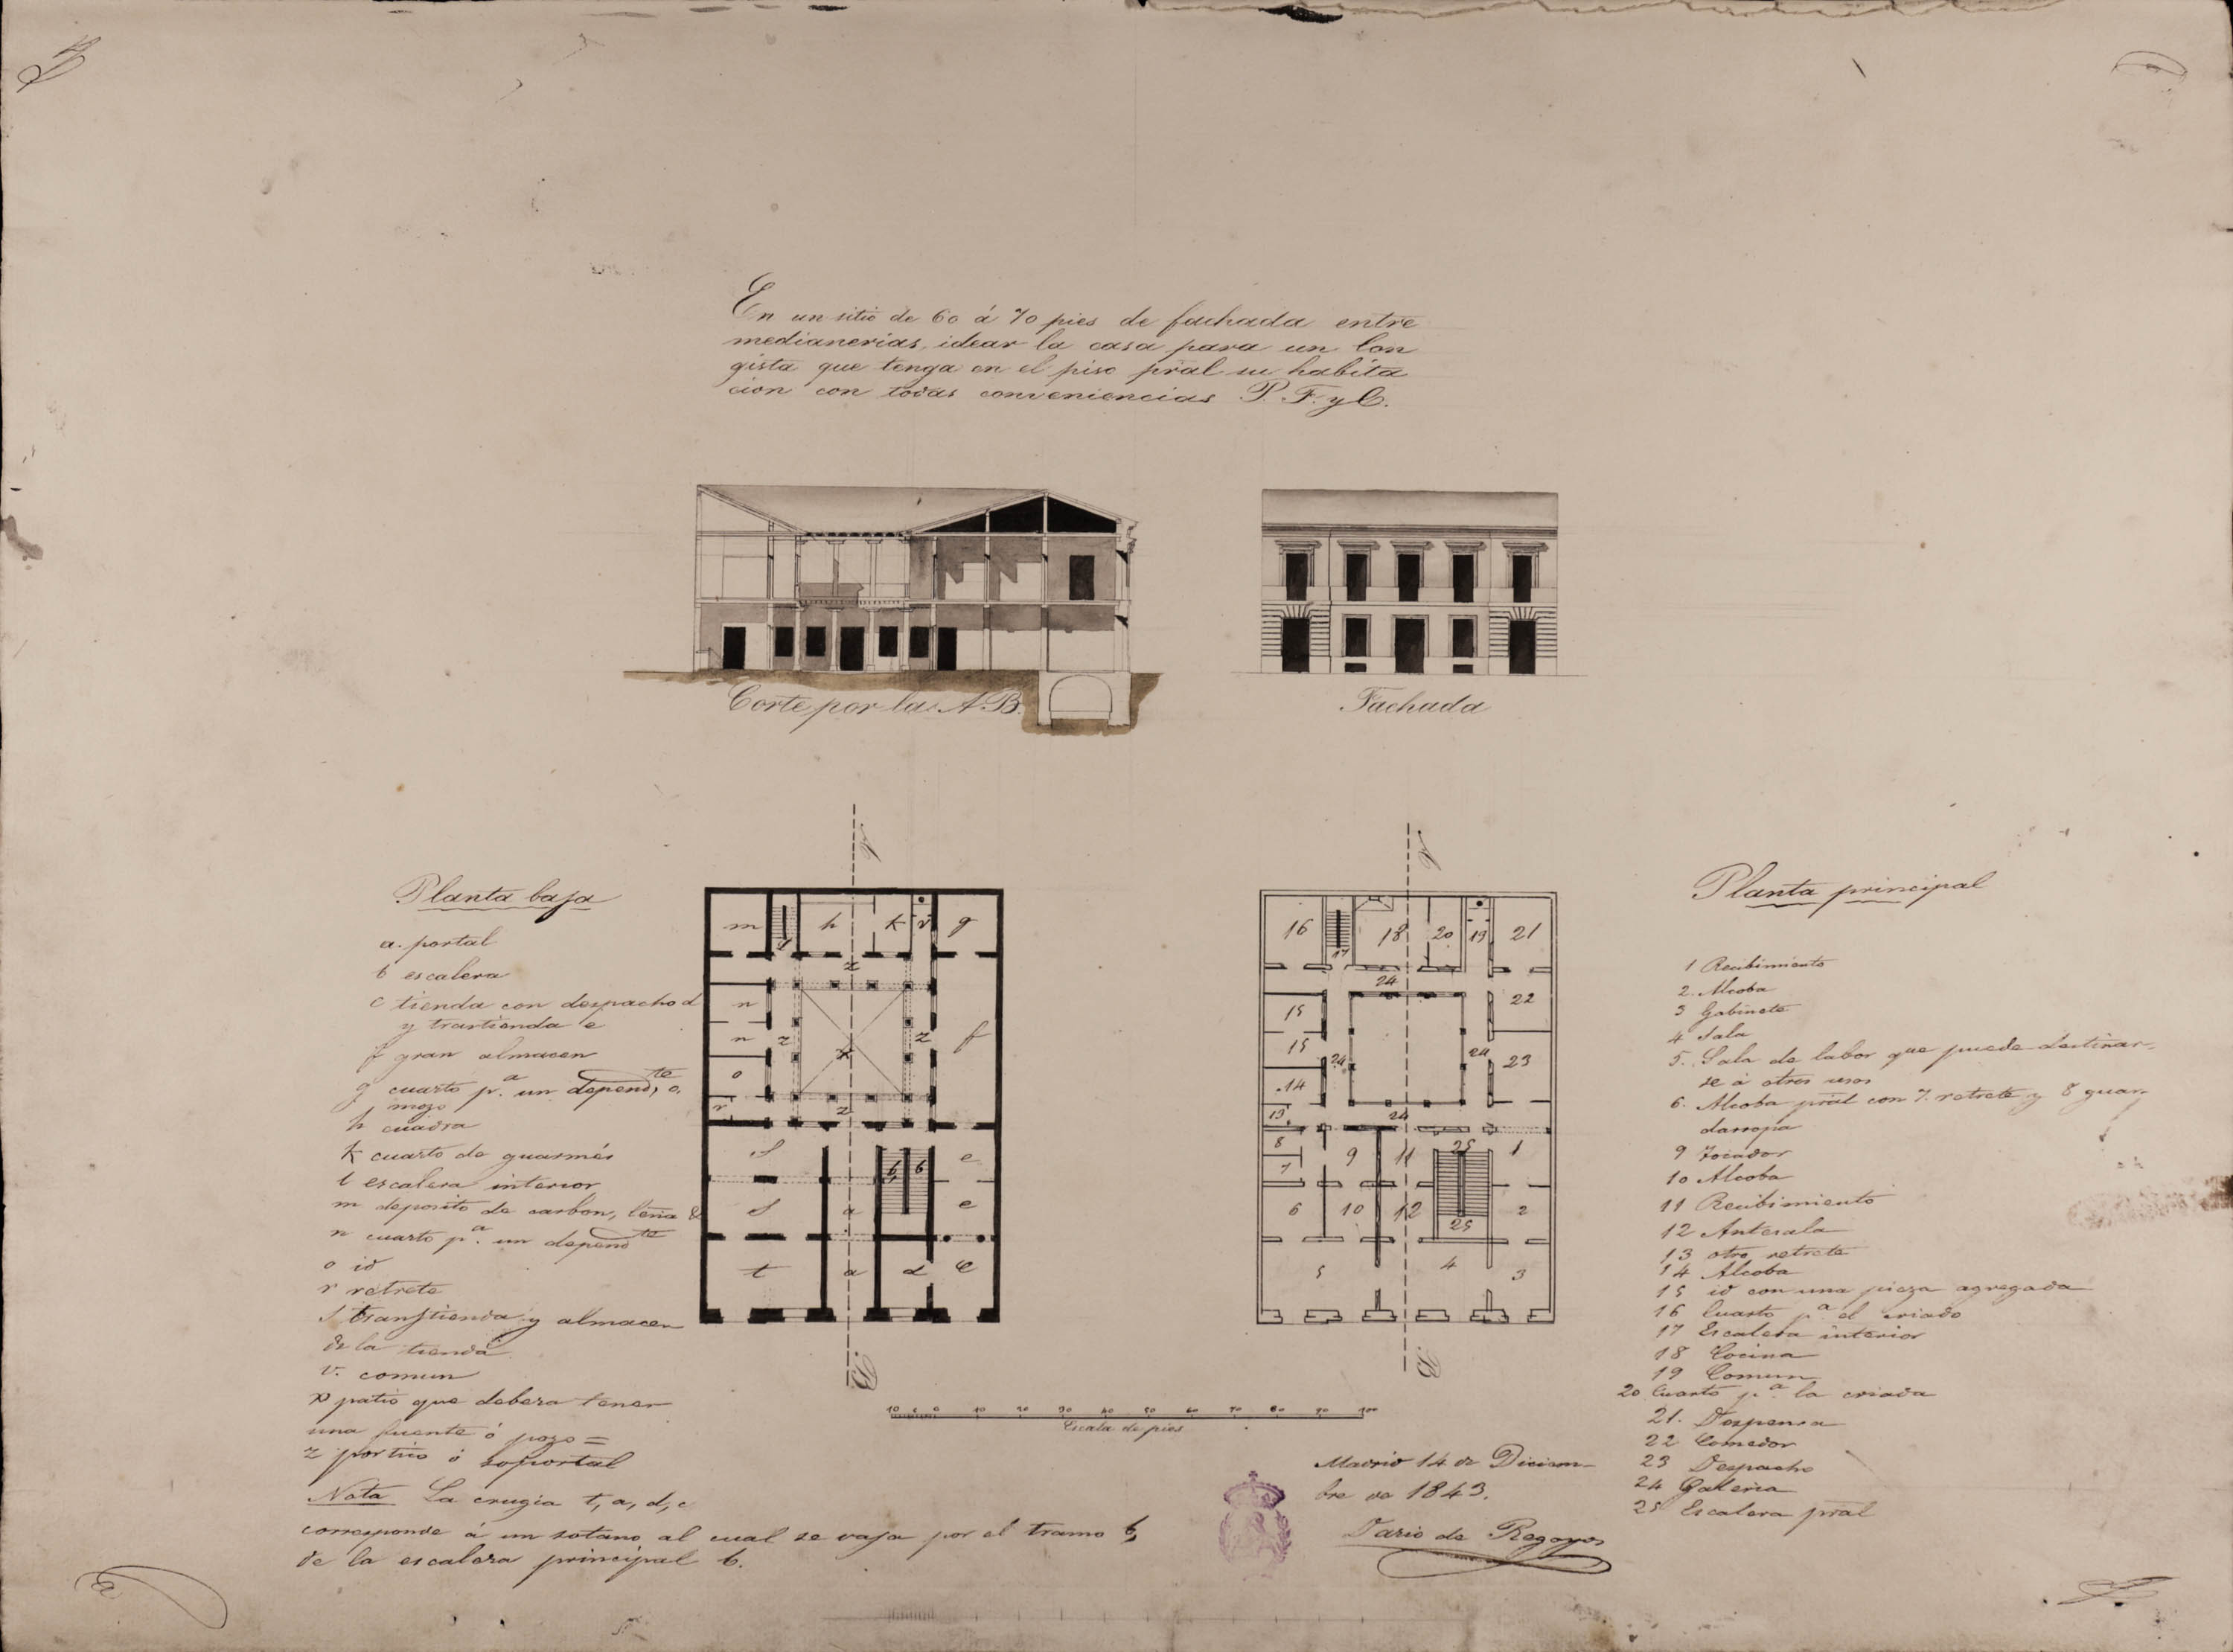 En un sitio de 60 á 70 pies de fachada entre
medianerias, idear la casa para un lon
gista que tenga en el piso pral su habita
cion con todas conveniencias P. F. y C.
Corte por la A.B.
Fachada
Planta baja
a. portal
b escalera
c tienda con despacho d
y trastienda e
f gran almacen
g cuarto p.a un depend.te o.
mozo
h cuadra
k cuarto de guarnés
l escalera interior
m deposito de carbon, leña &
n cuarto p.a un depend.te
o id
r retrete
s transtienda y almacen
de la tienda
v. comun
x patio que debera tener
una fuente ó pozo =
z portico ó soportal
Nota La crugia t, a, d, c
corresponde á un sotano al cual se vaja por el tramo b,
de la escalera principal b.
A
m l h k v g
z
n
n z x z f
o
r z
s b, b e
s a e
t a d c
B
A
16 17 18 20 19 21
24
15 22
15 24 24 23
14
13 24
8 9 11 25 1
7
6 10 12 25 2
5 4 3
B
10 5 0 10 20 30 40 50 60 70 80 90 100
Escala de pies
Madrid 14 de Diciem-
bre de 1843.
Dario de Regoyos
Planta principal
1 Recibimiento
2. Alcoba
3 Gabinete
4 Sala
5. Sala de labor que puede destinar-
se á otros usos
6. Alcoba pral con 7. retrete y 8 guar-
darropa
9 Tocador
10 Alcoba
11 Recibimiento
12 Antesala
13 otro retrete
14 Alcoba
15 id con una pieza agregada
16 Cuarto p.a el criado
17 Escalera interior
18 Cocina
19 Comun
20 Cuarto p.a la criada
21. Despensa
22 Comedor
23 Despacho
24 Galeria
25 Escalera pral